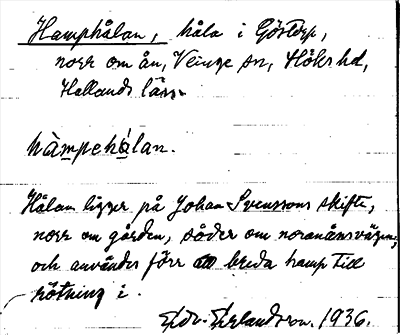 Hamphålan, håla i Göstorp,
norr om ån, Veinge sn, Höks hd,
Hallands län.
hàmpehålan.
Hålan ligger på Johan Svenssons skifte,
norr om gården, söder om norranåvägen,
och användes förr att breda hamp till
rötning i.
Edv. Erlandsson. 1936.